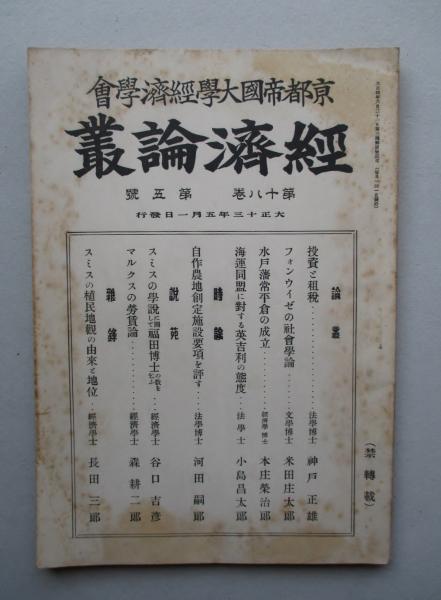 京都帝國大學經濟學會
經濟論叢
第十八卷 第五號
大正十三年五月一日發行
論叢
投資と租税 法學博士 神戸正雄
フォンウイゼの社會學論 文學博士 米田庄太郎
水戸藩常平倉の成立 經濟學博士 本庄榮治郎
海運同盟に對する英吉利の態度 法學士 小島昌太郎
時論
自作農地創定施設要項を評す 法學博士 河田嗣郎
說苑
スミスの學說に關して福田博士の教を乞ふ 經濟學士 谷口吉彦
マルクスの勞賃論 經濟學士 森耕二郎
雜錄
スミスの植民地觀の由來と地位 經濟學士 長田三郎
(禁轉載)